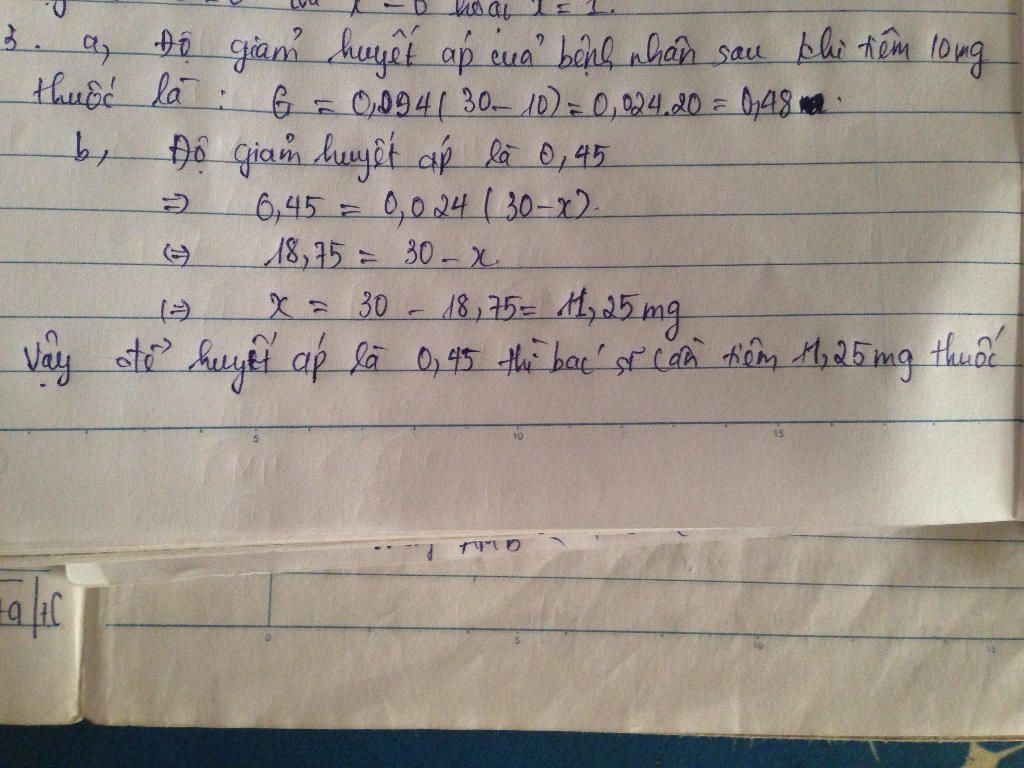 x = 0 hoặc x = 1.
3. a, Độ giảm huyết áp của bệnh nhân sau khi tiêm 10mg
thuốc là : G = 0,024(30-10) = 0,024.20 = 0,48.
b, Độ giảm huyết áp là 0,45
=> 0,45 = 0,024 (30-x).
(=) 18,75 = 30 - x
(=) x = 30 - 18,75 = 11,25 mg
Vậy để huyết áp là 0,45 thì bác sĩ cần tiêm 11,25 mg thuốc
5 10 15
0 5 10 15